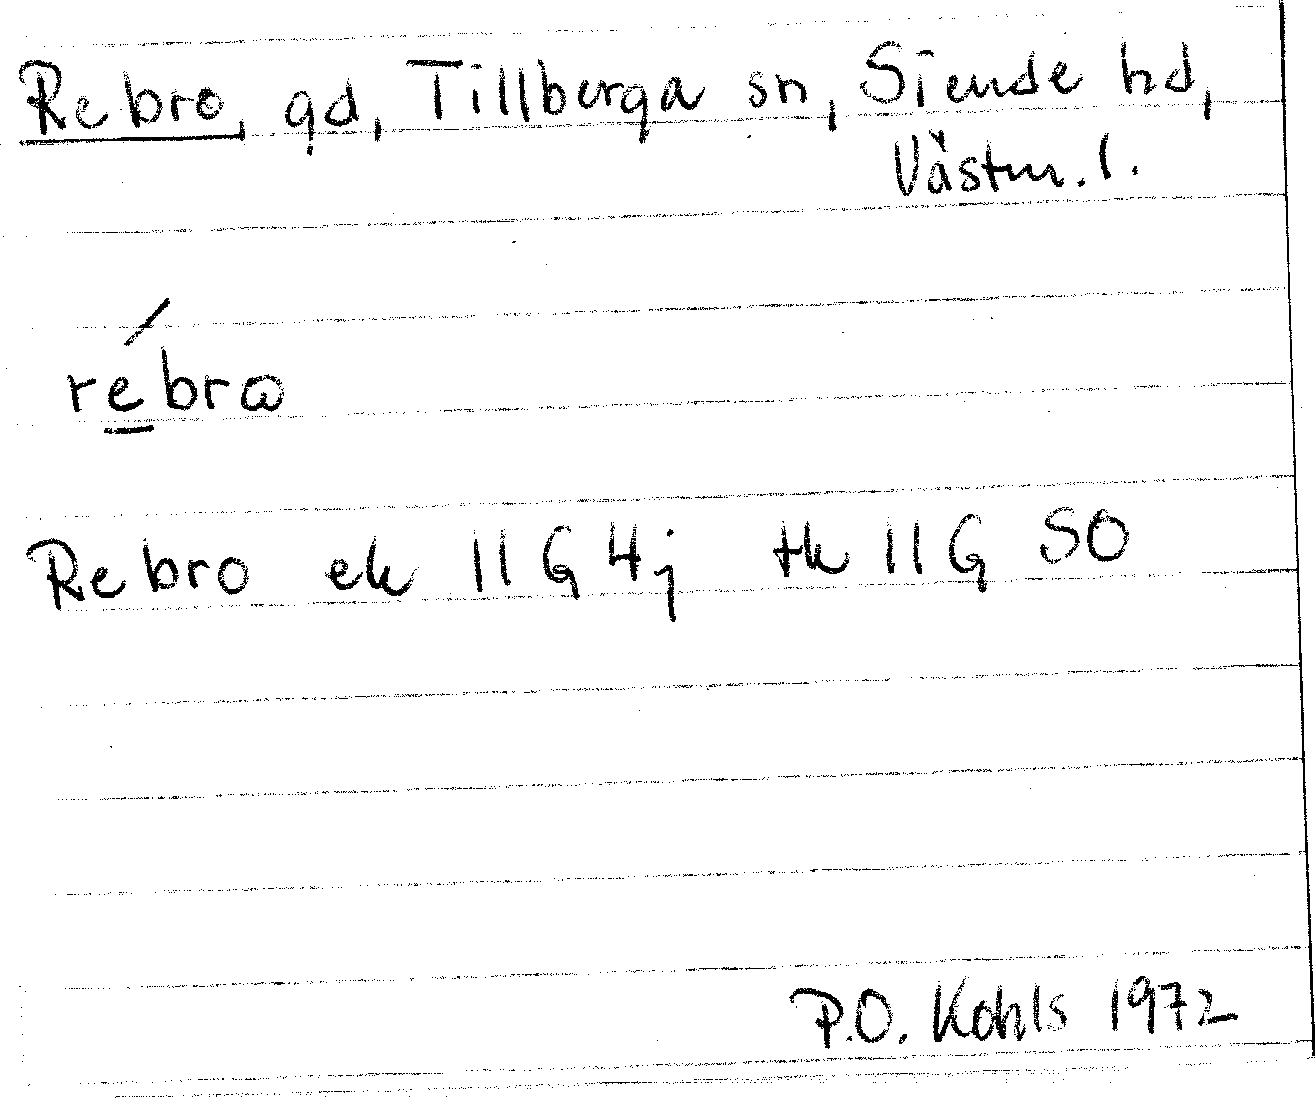 Rebro, gd, Tillberga sn, Siende hd,
Västm. l.
rébrω
Rebro ek 11 G 4j tk 11 G SO
P.O. Kohls 1972